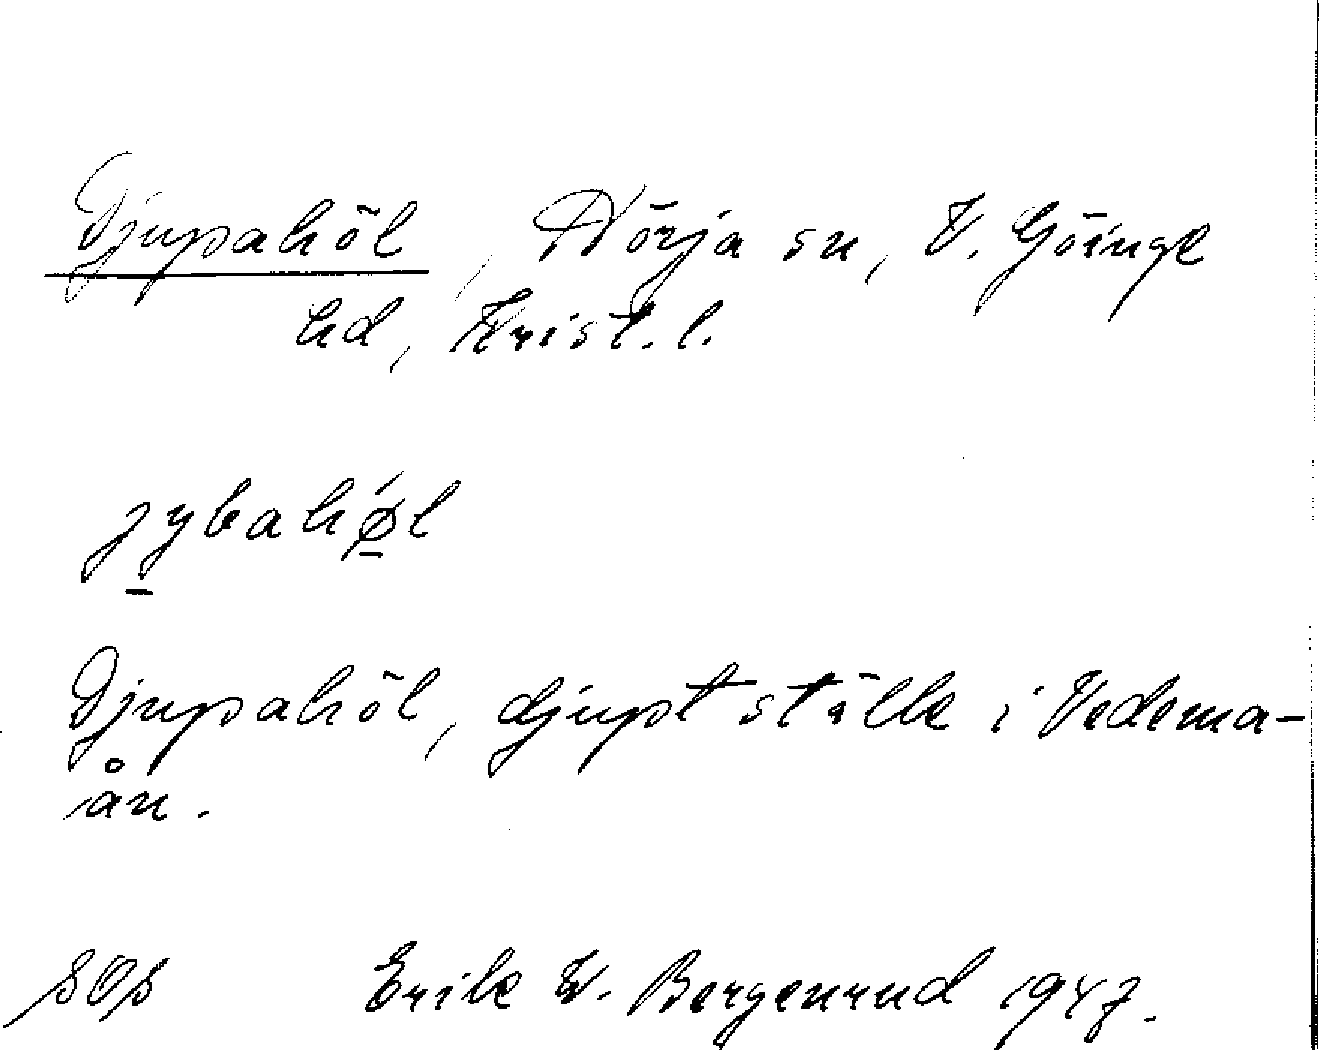 Djupahöl, Nörja sn, V. Göinge
hd, Krist. l.
jybahǿ̱l
Djupahöl, djupt ställe i Vedema-
ån.
SOS Erik W. Bergenrud 1947.